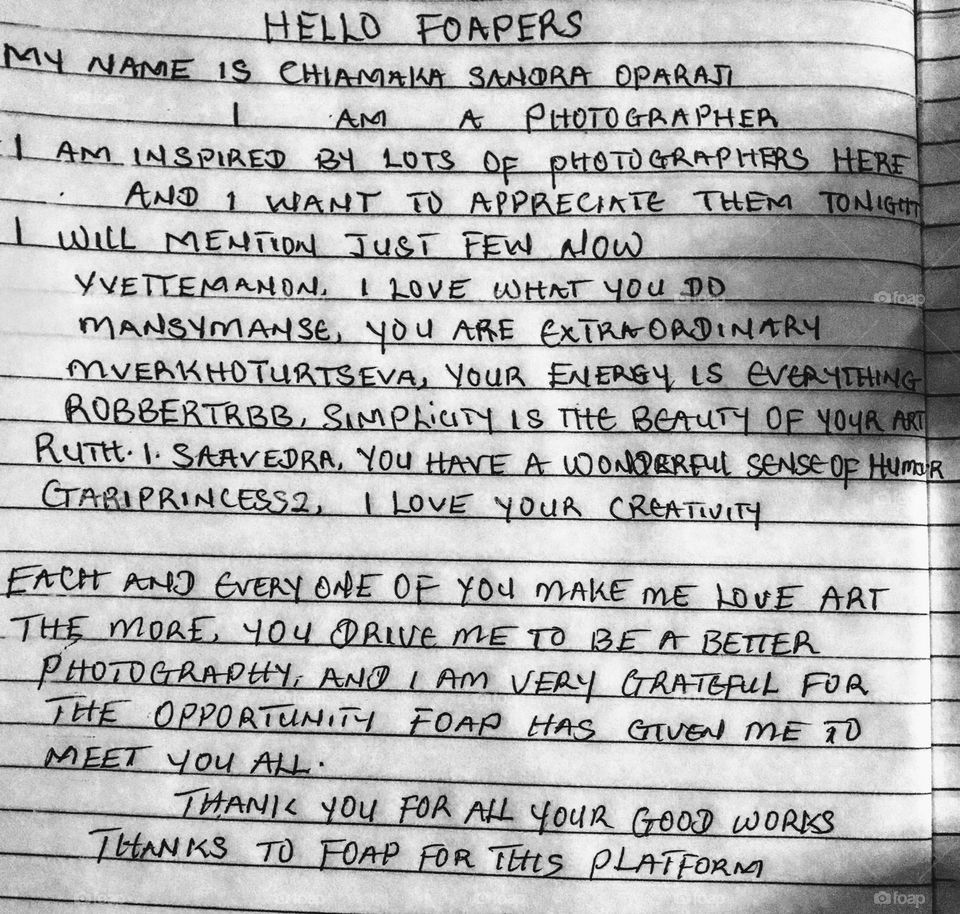 HELLO FOAPERS
MY NAME IS CHIAMAKA SANDRA OPARAJI
I AM A PHOTOGRAPHER
I AM INSPIRED BY LOTS OF PHOTOGRAPHERS HERE
AND I WANT TO APPRECIATE THEM TONIGHT
I WILL MENTION JUST FEW NOW
YVETTEMANON, I LOVE WHAT YOU DO
MANSYMANSE, YOU ARE EXTRAORDINARY
MVERKHOTURTSEVA, YOUR ENERGY IS EVERYTHING
ROBBERTRBB, SIMPLICITY IS THE BEAUTY OF YOUR ART
RUTH.I.SAAVEDRA, YOU HAVE A WONDERFUL SENSE OF HUMOUR
GARIPRINCESS2, I LOVE YOUR CREATIVITY
EACH AND EVERYONE OF YOU MAKE ME LOVE ART
THE MORE, YOU DRIVE ME TO BE A BETTER
PHOTOGRAPHY, AND I AM VERY GRATEFUL FOR
THE OPPORTUNITY FOAP HAS GIVEN ME TO
MEET YOU ALL.
THANK YOU FOR ALL YOUR GOOD WORKS
THANKS TO FOAP FOR THIS PLATFORM
foap
foap